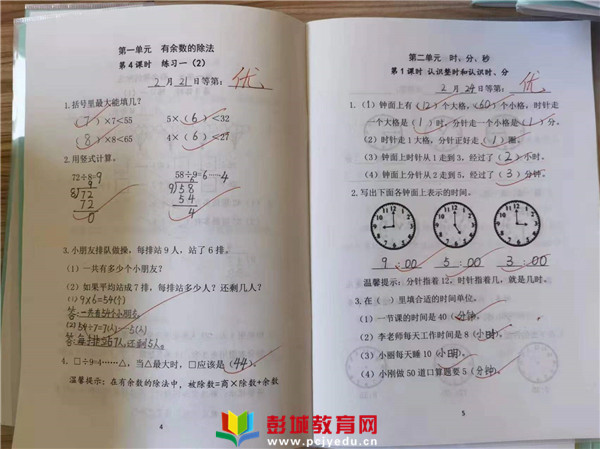 第一单元 有余数的除法
第4课时 练习一（2）
2月21日等第：优
1.括号里最大能填几？
（7）×7<55 5×（6）<32
（8）×8<65 4×（6）<27
2.用竖式计算。
72÷8=9 58÷9=6……4
9 6
8 72 9 58
72 54
0 4
3.小朋友排队做操，每排站9人，站了6排。
（1）一共有多少个小朋友？
（2）如果平均站成7排，每排站多少人？还剩几人？
(1) 9×6=54(个)
答:一共有54个小朋友
(2) 54÷7=7(人)……5(人)
答:每排站7人,还剩5人。
4.□÷9=4……△，当△最大时，□应该是（44）。
温馨提示：在有余数的除法中，被除数=商×除数+余数
4
第二单元 时、分、秒
第1课时 认识整时和认识时、分
2月24日等第：优
1.（1）钟面上有（12）个大格，（60）个小格，时针走
一个大格是（1）时，分针走一个小格是（1）分。
（2）时针走1大格，分针正好走（1）圈。
（3）钟面上时针从1走到3，经过了（2）小时。
（4）钟面上分针从2走到5，经过了（3）分钟。
2.写出下面各钟面上表示的时间。
9:00 5:00 3:00
温馨提示：分针指着12，时针指着几，就是几时。
3.在（ ）里填合适的时间单位。
（1）一节课的时间是40（分钟）。
（2）李老师每天工作时间是8（小时）。
（3）小丽每天睡10（小时）。
（4）小刚做50道口算题要5（分钟）。
5
彭城教育网
www.pcjyedu.cn